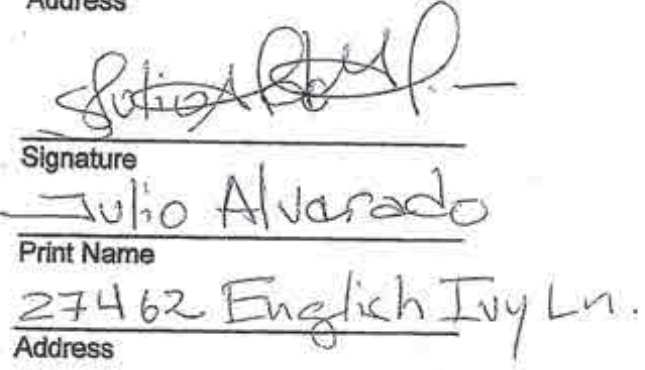 Address
Signature
Julio Alvarado
Print Name
27462 English Ivy Ln.
Address